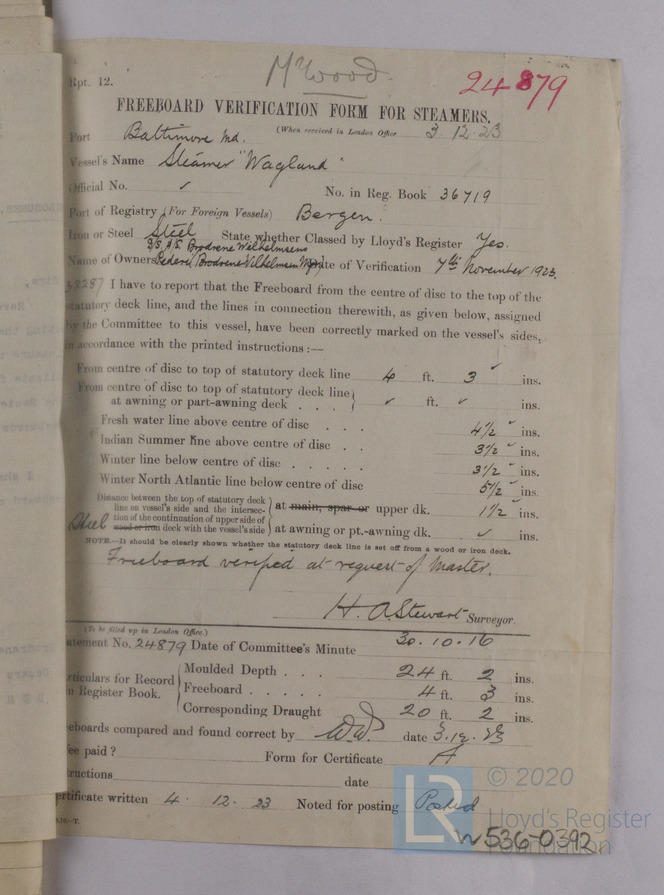 Rpt. 12.
McWood
24879
FREEBOARD VERIFICATION FORM FOR STEAMERS.
(When received in London Office 3.12.23
Port Baltimore Md.
Vessel's Name Steamer "Wagland"
Official No. ✓ No. in Reg. Book 36719
Port of Registry (For Foreign Vessels) Bergen.
Iron or Steel Steel State whether Classed by Lloyd's Register Yes.
Brodrene Wilhelmsens
Name of Owners Date of Verification 7th November 1923.
I have to report that the Freeboard from the centre of disc to the top of the
statutory deck line, and the lines in connection therewith, as given below, assigned
by the Committee to this vessel, have been correctly marked on the vessel's sides,
in accordance with the printed instructions :—
From centre of disc to top of statutory deck line 4 ft. 3 ✓ ins.
From centre of disc to top of statutory deck line
at awning or part-awning deck . . . ✓ ft. ✓ ins.
Fresh water line above centre of disc . . . 4½ ✓ ins.
Indian Summer line above centre of disc . . 3½ ✓ ins.
Winter line below centre of disc . . . . . 3½ ✓ ins.
Winter North Atlantic line below centre of disc 5½ ✓ ins.
Distance between the top of statutory deck
line on vessel's side and the intersec-
tion of the continuation of upper side of
Steel wood or iron deck with the vessel's side
at main, spar or upper dk. 1½ ✓ ins.
at awning or pt.-awning dk. ✓ ins.
NOTE.—It should be clearly shown whether the statutory deck line is set off from a wood or iron deck.
Freeboard verified at request of Master.
H. A. Stewart Surveyor.
(To be filled up in London Office.)
atement No. 24879 Date of Committee's Minute 30.10.16
articulars for Record
in Register Book.
Moulded Depth . . . 24 ft. 2 ins.
Freeboard . . . . . 4 ft. 3 ins.
Corresponding Draught 20 ft. 2 ins.
eeboards compared and found correct by date 3.12.23
ee paid ? Form for Certificate A
tructions date
ertificate written 4. 12. 23 Noted for posting Posted
© 2020
LR
Lloyd's Register
Foundation
W536-0392